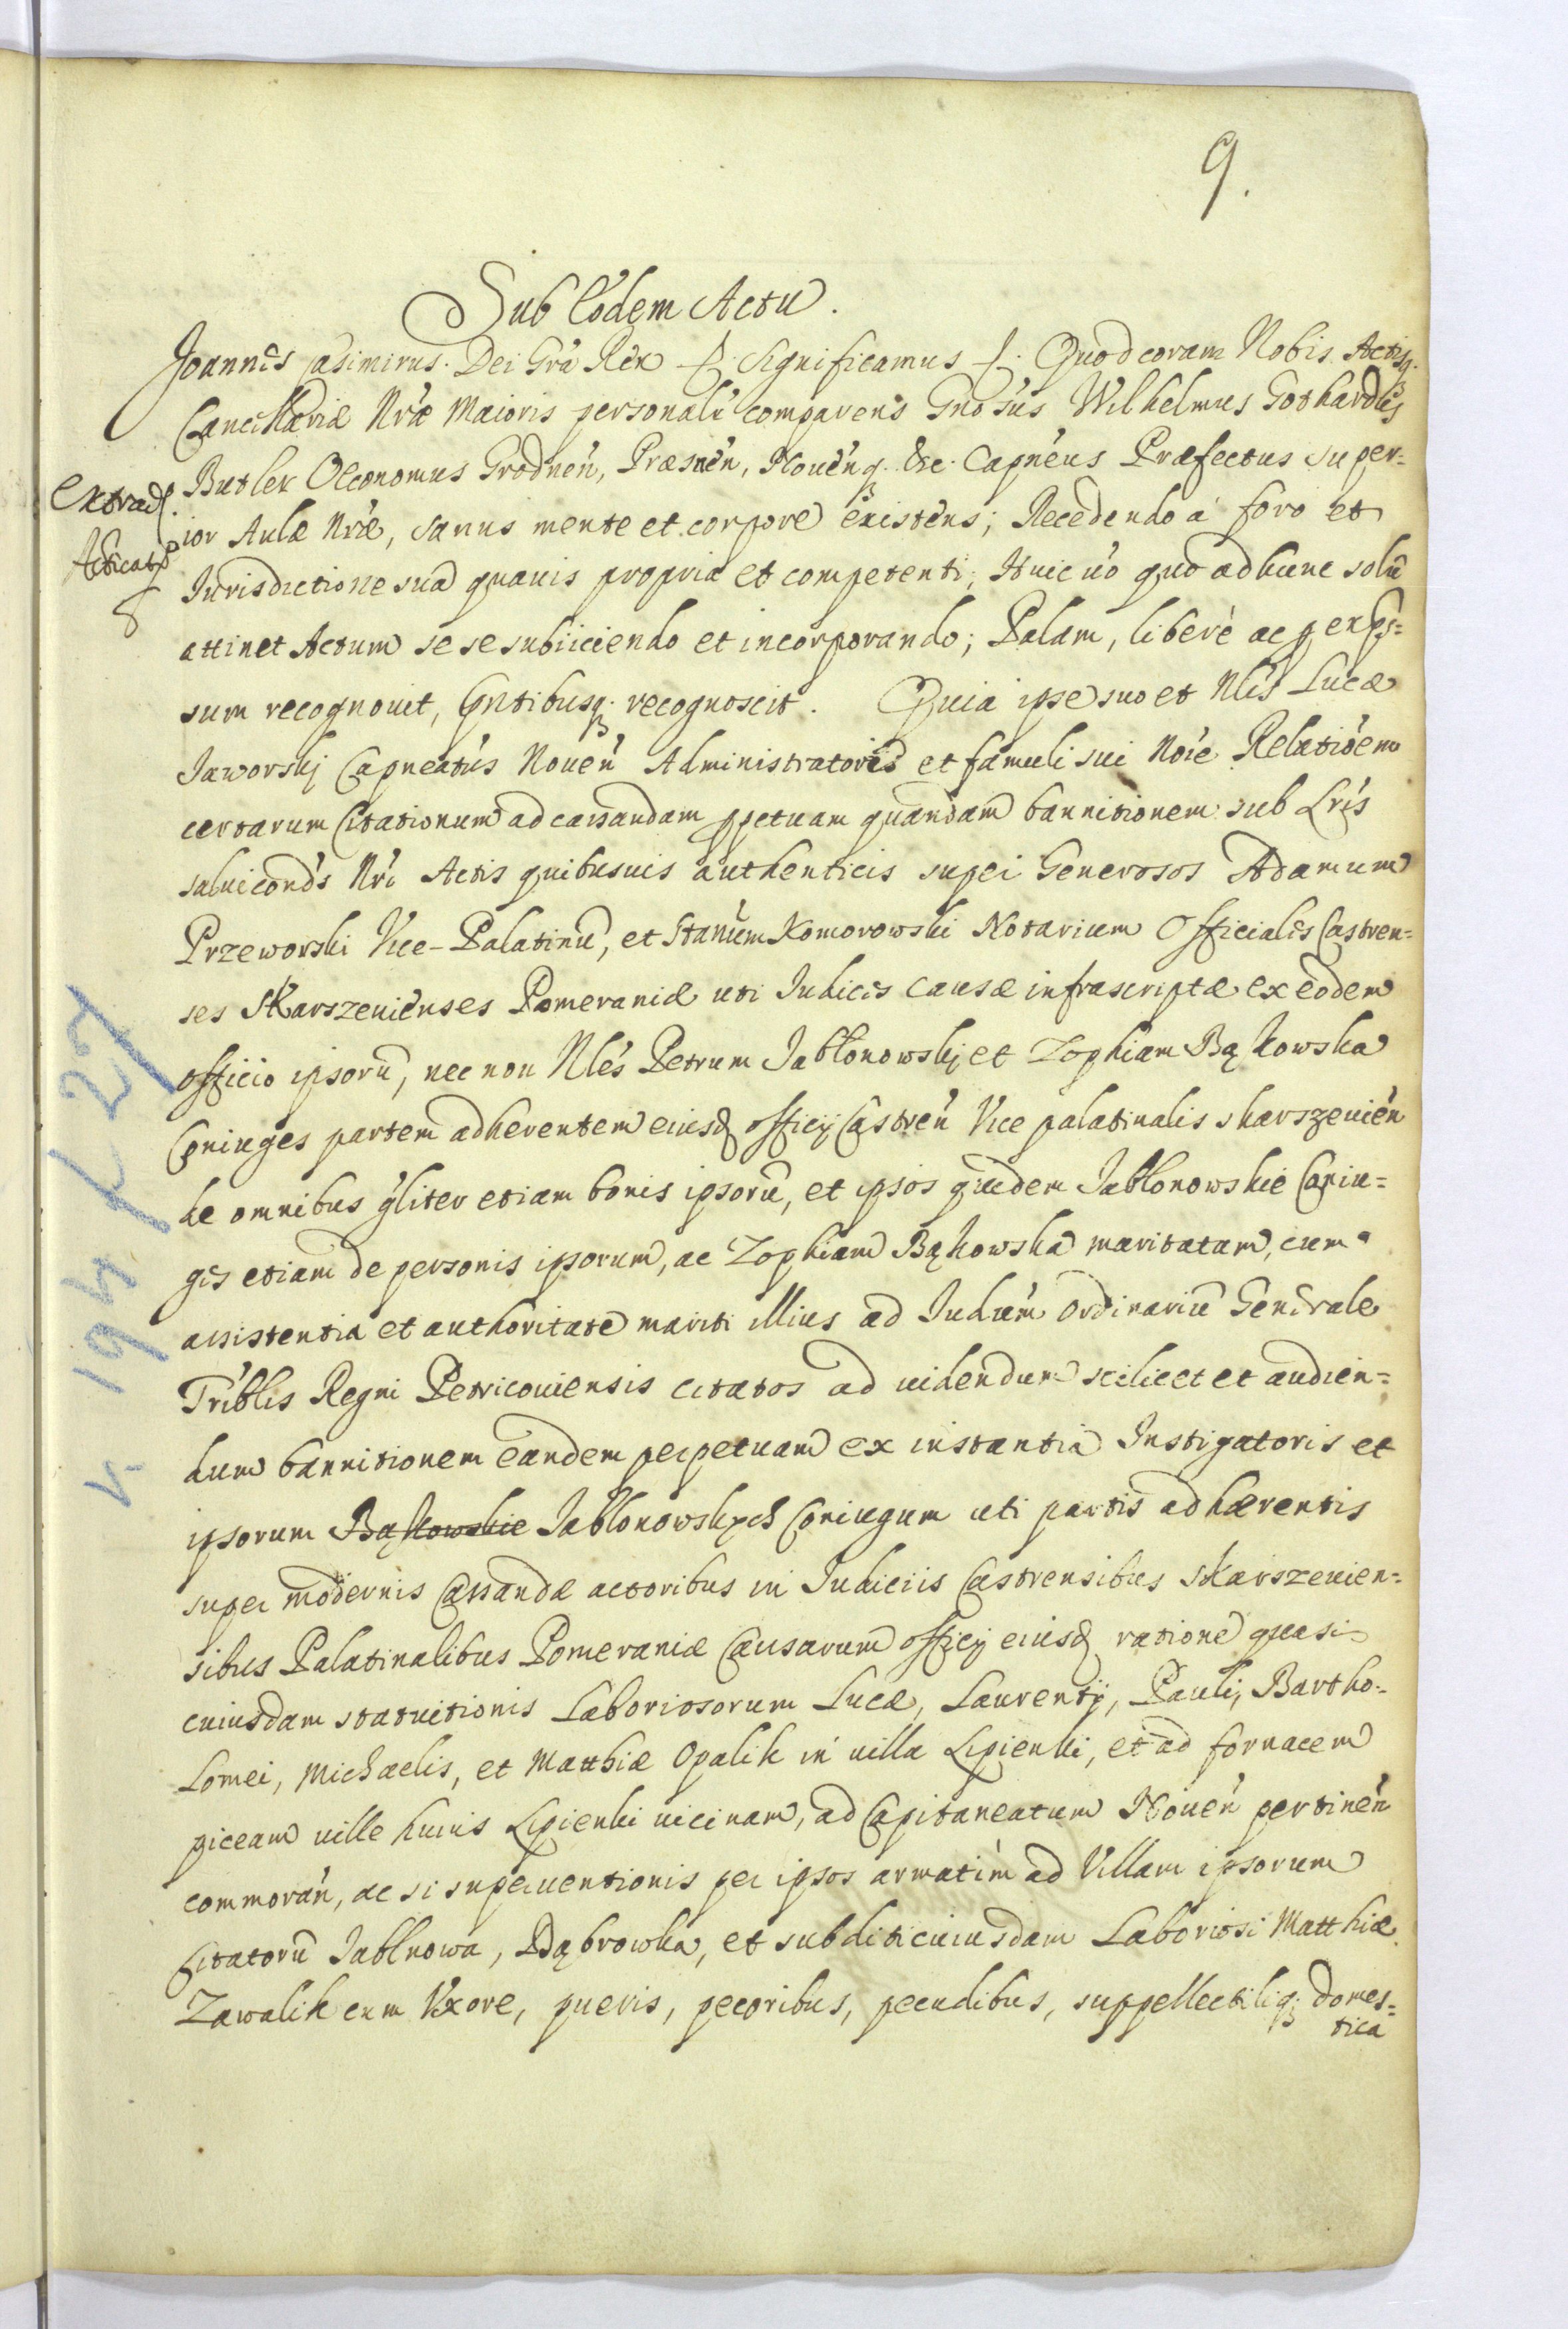 9.
Sub Eodem Actu.
Joannes Casimirus Dei Gra Rex f. Significamus f. Quod coram Nobis Actisq.
Cancellariæ Nræ Maioris personalr comparens Gnosus Wilhelmus Gothardus
Extrad.
Butler Oeconomus Grodnen, Præsnen, Novenq. &c. Capneus Præfectus super=
Acticat
ior Aulæ Nræ, sanus mente et corpore existens; Recedendo à foro et
Jurisdictione sua quavis propria et competenti; Huic uo quo ad hunc solu
attinet Actum se se subiiciendo et incorporando; Palam, liberè ac p exps=
sum recognovit, Pntibusq. recognoscit. Quia ipse suo et Nlis Lucæ
Jaworskj Capneatus Noven Administratoris et famuli sui Noie Relatioem
certarum Citationum ad cassandam ppetuam quandam bannitionem sub Lris
salvicondus Nri Actis quibusvis authenticis super Generosos Adamum
Przeworski Vice-Palatinu, et Stanum Komorowski Notarium Officiales Castren=
ses Skarszevienses Pomeraniæ uti Judices causæ infrascriptæ ex eodem
officio ipsoru, nec non Nles Petrum Jabłonowskj et Zophiam Bąkowska
Coniuges partem adherentem eiusd officij Castren Vice palatinalis skarszevien
de omnibus gliter etiam bonis ipsoru, et ipsos quidem Jabłonowskie Coniu=
ges etiam de personis ipsorum, ac Zophiam Bąkowska maritatam, cum
assistentia et authoritate mariti illius ad Judium Ordinariu Generale
Triblis Regni Petricoviensis citatos ad videndum scilicet et audien=
dum bannitionem eandem perpetuam ex instantia Instigatoris et
ipsorum Bąkowskie Jabłonowskych Coniugum uti partis adhærentis
super modernis Cassandæ actoribus in Judiciis Castrensibus Skarszevien=
sibus Palatinalibus Pomeraniæ Causarum officij eiusd ratione quasi
cuiusdam statuitionis Laboriosorum Lucæ, Laurentij, Pauli, Bartho=
lomei, Michaelis, et Matthiæ Opalik in villa Lipienki, et ad fornacem
piceam ville huius Lipienki vicinam, ad Capitaneatum Noven pertinen
commoran, ac si superventionis per ipsos armatim ad Villam ipsorum
Citatoru Jabłnowa, Dąbrowka, et subditi cuiusdam Laboriosi Matthiæ
Zawalik cum Uxore, pueris, pecoribus, pecudibus, suppellectiliq; domes=
tica
v. 194 / 27